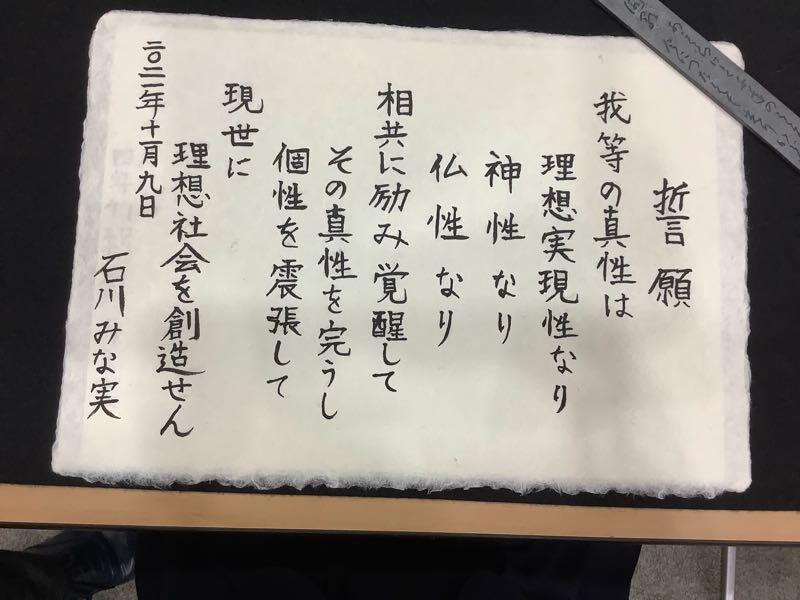 誓願
我等の真性は
理想実現性なり
神性なり
仏性なり
相共に励み覚醒して
その真性を完うし
個性を震張して
現世に
理想社会を創造せん
二〇二一年十一月九日
石川みな実